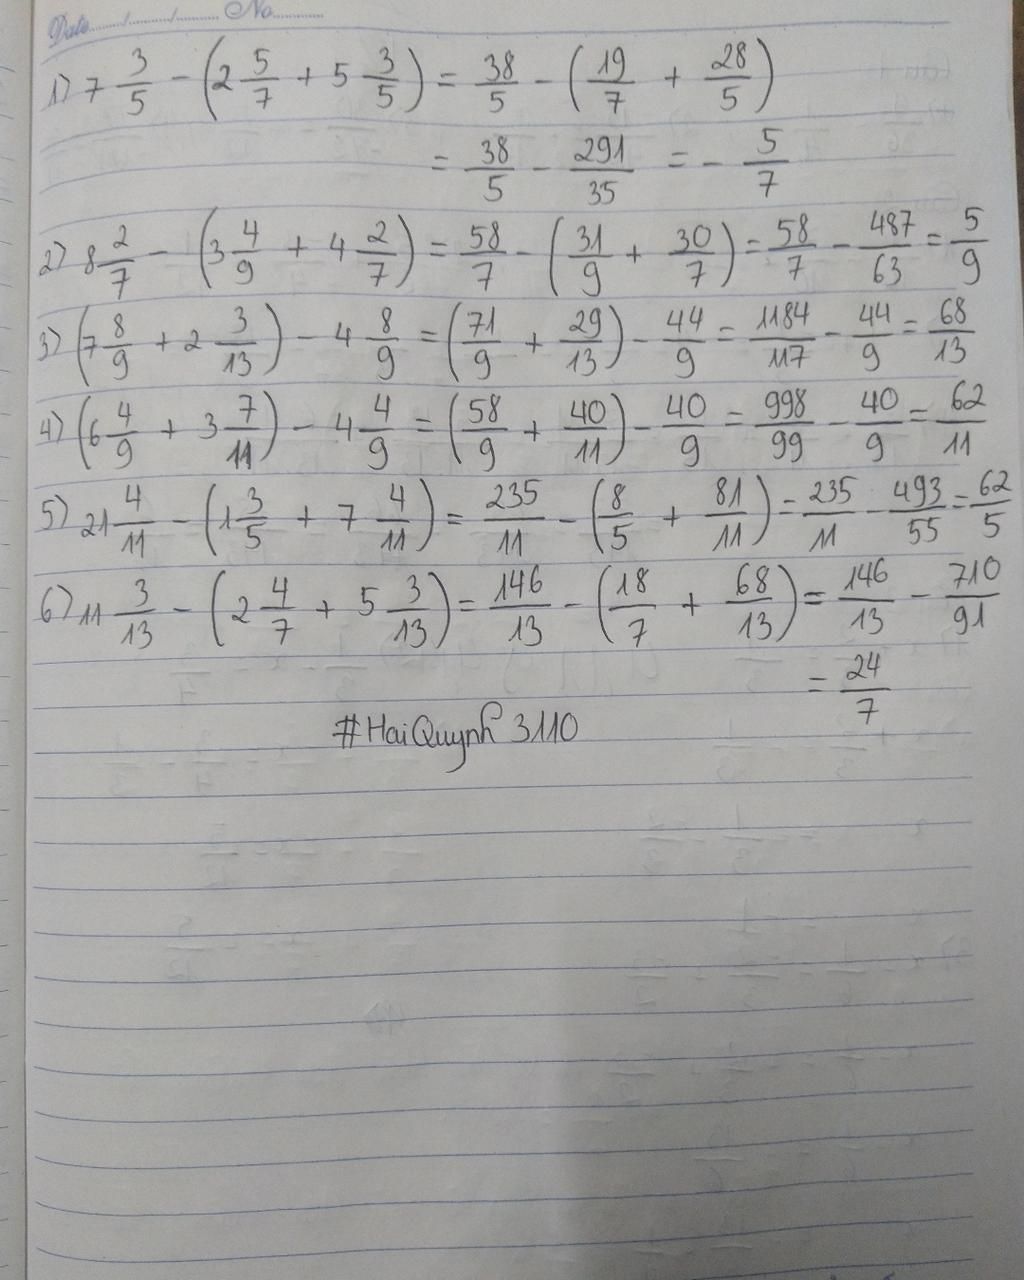 Date...../...../.......... No............
1) 7 3/5 - (2 5/7 + 5 3/5) = 38/5 - (19/7 + 28/5)
= 38/5 - 291/35 = - 5/7
2) 8 2/7 - (3 4/9 + 4 2/7) = 58/7 - (31/9 + 30/7) = 58/7 - 487/63 = 5/9
3) (7 8/9 + 2 3/13) - 4 8/9 = (71/9 + 29/13) - 44/9 = 1184/117 - 44/9 = 68/13
4) (6 4/9 + 3 7/11) - 4 4/9 = (58/9 + 40/11) - 40/9 = 998/99 - 40/9 = 62/11
5) 21 4/11 - (1 3/5 + 7 4/11) = 235/11 - (8/5 + 81/11) = 235/11 - 493/55 = 62/5
6) 11 3/13 - (2 4/7 + 5 3/13) = 146/13 - (18/7 + 68/13) = 146/13 - 710/91
= 24/7
#HaiQuynh 3110